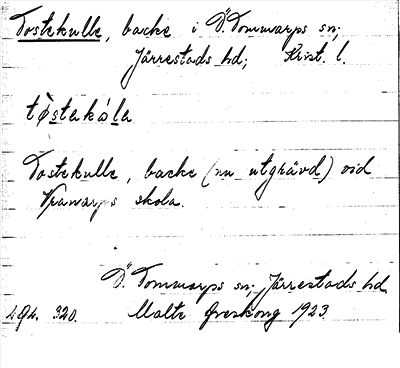 Tostekulle, backe i Ö. Tommarps sn;
Järrestads hd; Krist. l.
tòstakòla
Tostekulle, backe (nu utgrävd) vid
Vranarps skola.
Ö. Tommarps sn; Järrestads hd
494. 320. Malte Areskoug 1923.